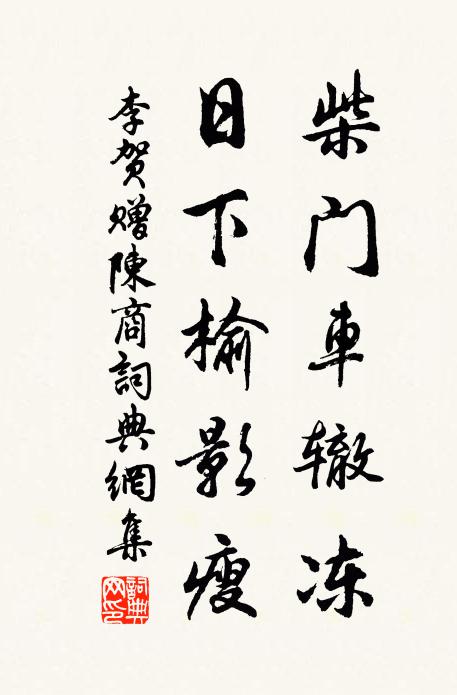 柴门車辙冻
日下榆影瘦
李贺赠陳商詞典網集
詞典网印